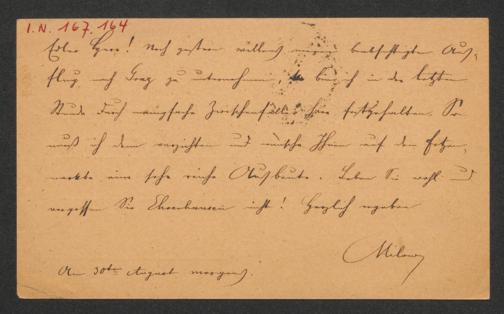 I.N. 167.164
Edler Herr! Noch gestern willens meinen beabsichtigten Aus-
flug nach Graz zu unternehmen, bin ich in der letzten
Stunde durch Zwischenfälle hier festgehalten. So
muß ich denn verzichten und wünsche Ihnen auf dem
eine sehr reiche Ausbeute. Leben Sie wohl und
vergessen Sie nicht! Herzlich ergeben
Milow
Am 30ten August morgens.